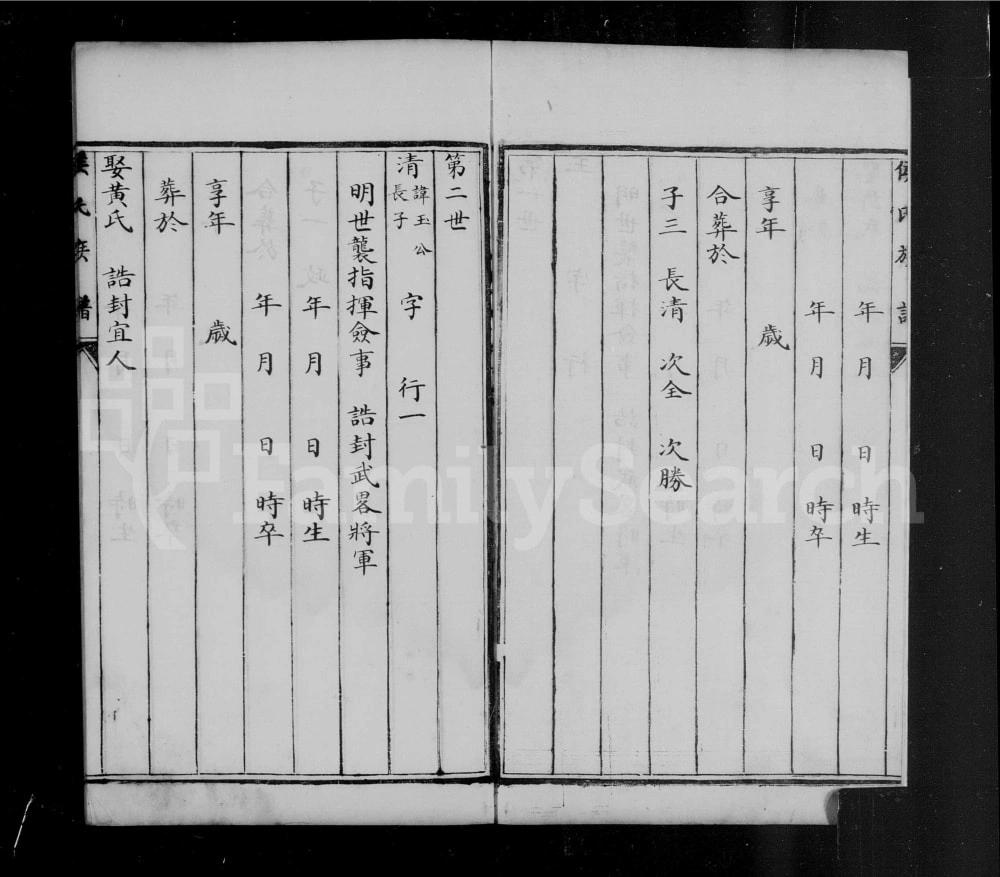 氏族譜
年 月 日 時生
年 月 日 時卒
享年 歲
合葬於
子三 長清 次全 次勝
第二世
清 諱玉公長子 字 行一
明世襲指揮僉事 誥封武畧將軍
年 月 日 時生
年 月 日 時卒
享年 歲
葬於
娶黃氏 誥封宜人
氏族譜
FamilySearch